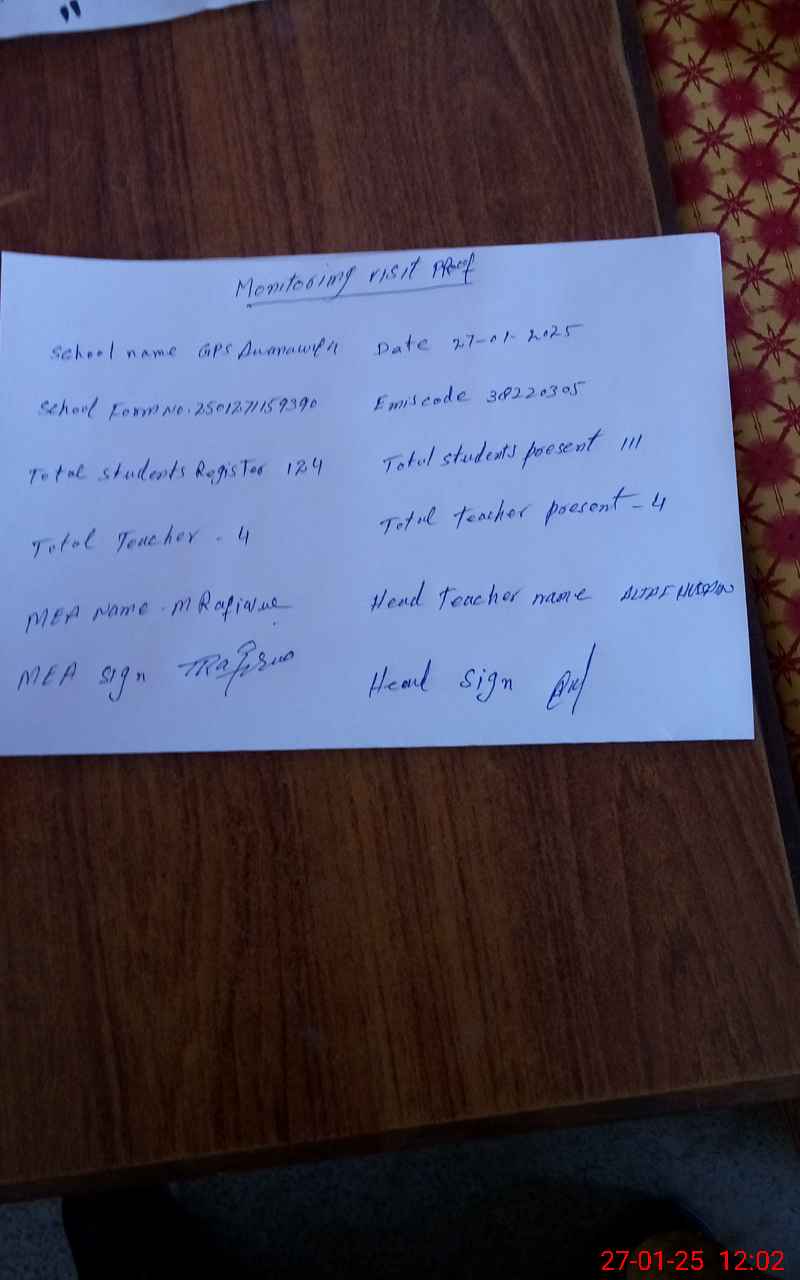 Monitoring visit Proof
School name GPS Date 27-01-2025
School Form No. 2501271159390 Emiscode 38220305
Total students Register 124 Total students present 111
Total Teacher - 4 Total teacher present - 4
MEA Name - M Head teacher name
MEA sign Head sign
27-01-25 12:02